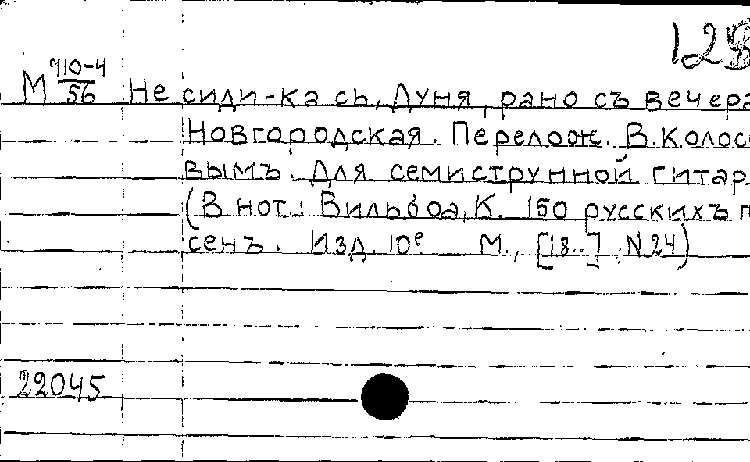 128
М 710-4/56 Не сиди-ка сь, Дуня, рано съ вечера
Новгородская. Перелож. В. Колосо
вымъ. Для семиструнной гитар
(В нот.: Вильбоа, К. 150 русскихъ п
сенъ. Изд. 10е М., [18..], N 24)
22045